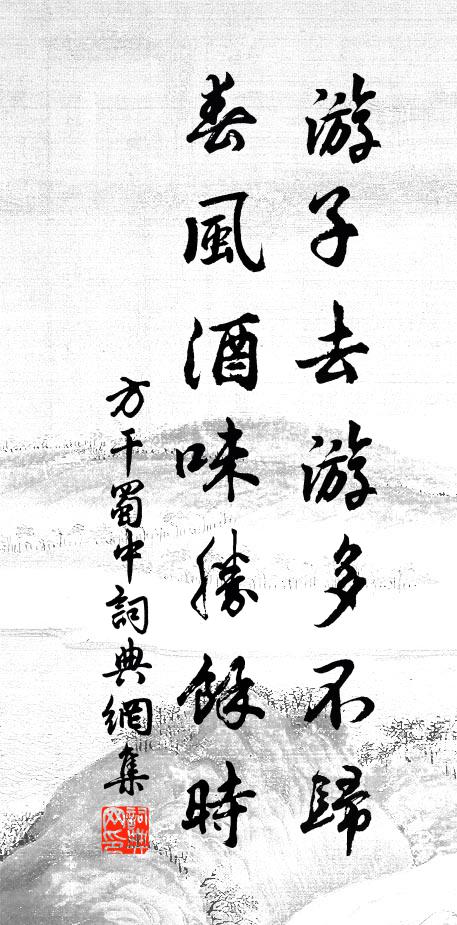 游子去游多不歸
春風酒味勝餘時
方干蜀中詞典網集